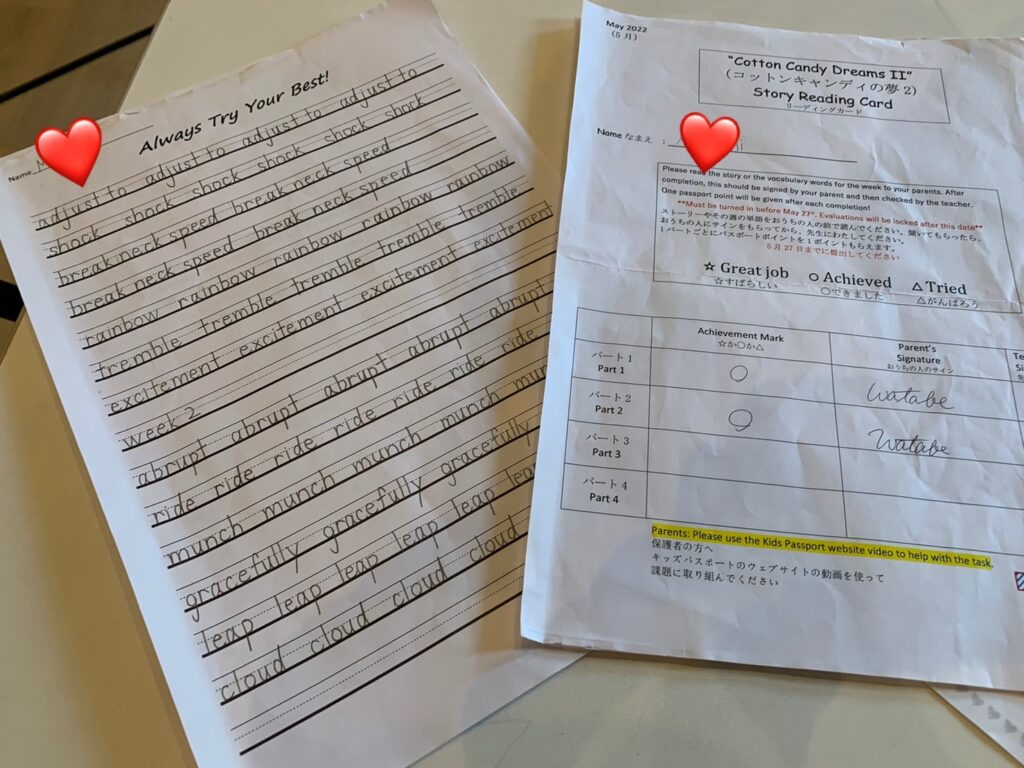 Always Try Your Best!
Name
adjust to adjust to adjust to adjust to
shock shock shock shock shock
break neck speed break neck speed
break neck speed break neck speed
rainbow rainbow rainbow rainbow
tremble tremble tremble tremble
excitement excitement excitement
week 2
abrupt abrupt abrupt abrupt abrupt
ride ride ride ride ride ride ride
munch munch munch munch
gracefully gracefully gracefully
leap leap leap leap leap leap
cloud cloud cloud cloud cloud
May 2022
(5月)
"Cotton Candy Dreams II"
(コットンキャンディの夢2)
Story Reading Card
リーディングカード
Name なまえ :
Please read the story or the vocabulary words for the week to your parents. After
completion, this should be signed by your parent and then checked by the teacher.
One passport point will be given after each completion!
**Must be turned in before May 27th. Evaluations will be locked after this date**
ストーリーやその週の単語をおうちの人の前で読んでください。聞いてもらったら、
おうちの人にサインをもらってから、先生にわたしてください。
1パートごとにパスポートポイントを1ポイントもらえます。
5月27日までに提出してください
☆ Great job ○ Achieved △ Tried
☆すばらしい ○できました △がんばろう
Achievement Mark
☆か○か△
Parent's
Signature
おうちの人のサイン
パート1
Part 1
○
Watabe
パート2
Part 2
○
Watabe
パート3
Part 3
パート4
Part 4
Parents: Please use the Kids Passport website video to help with the task.
保護者の方へ
キッズパスポートのウェブサイトの動画を使って
課題に取り組んでください